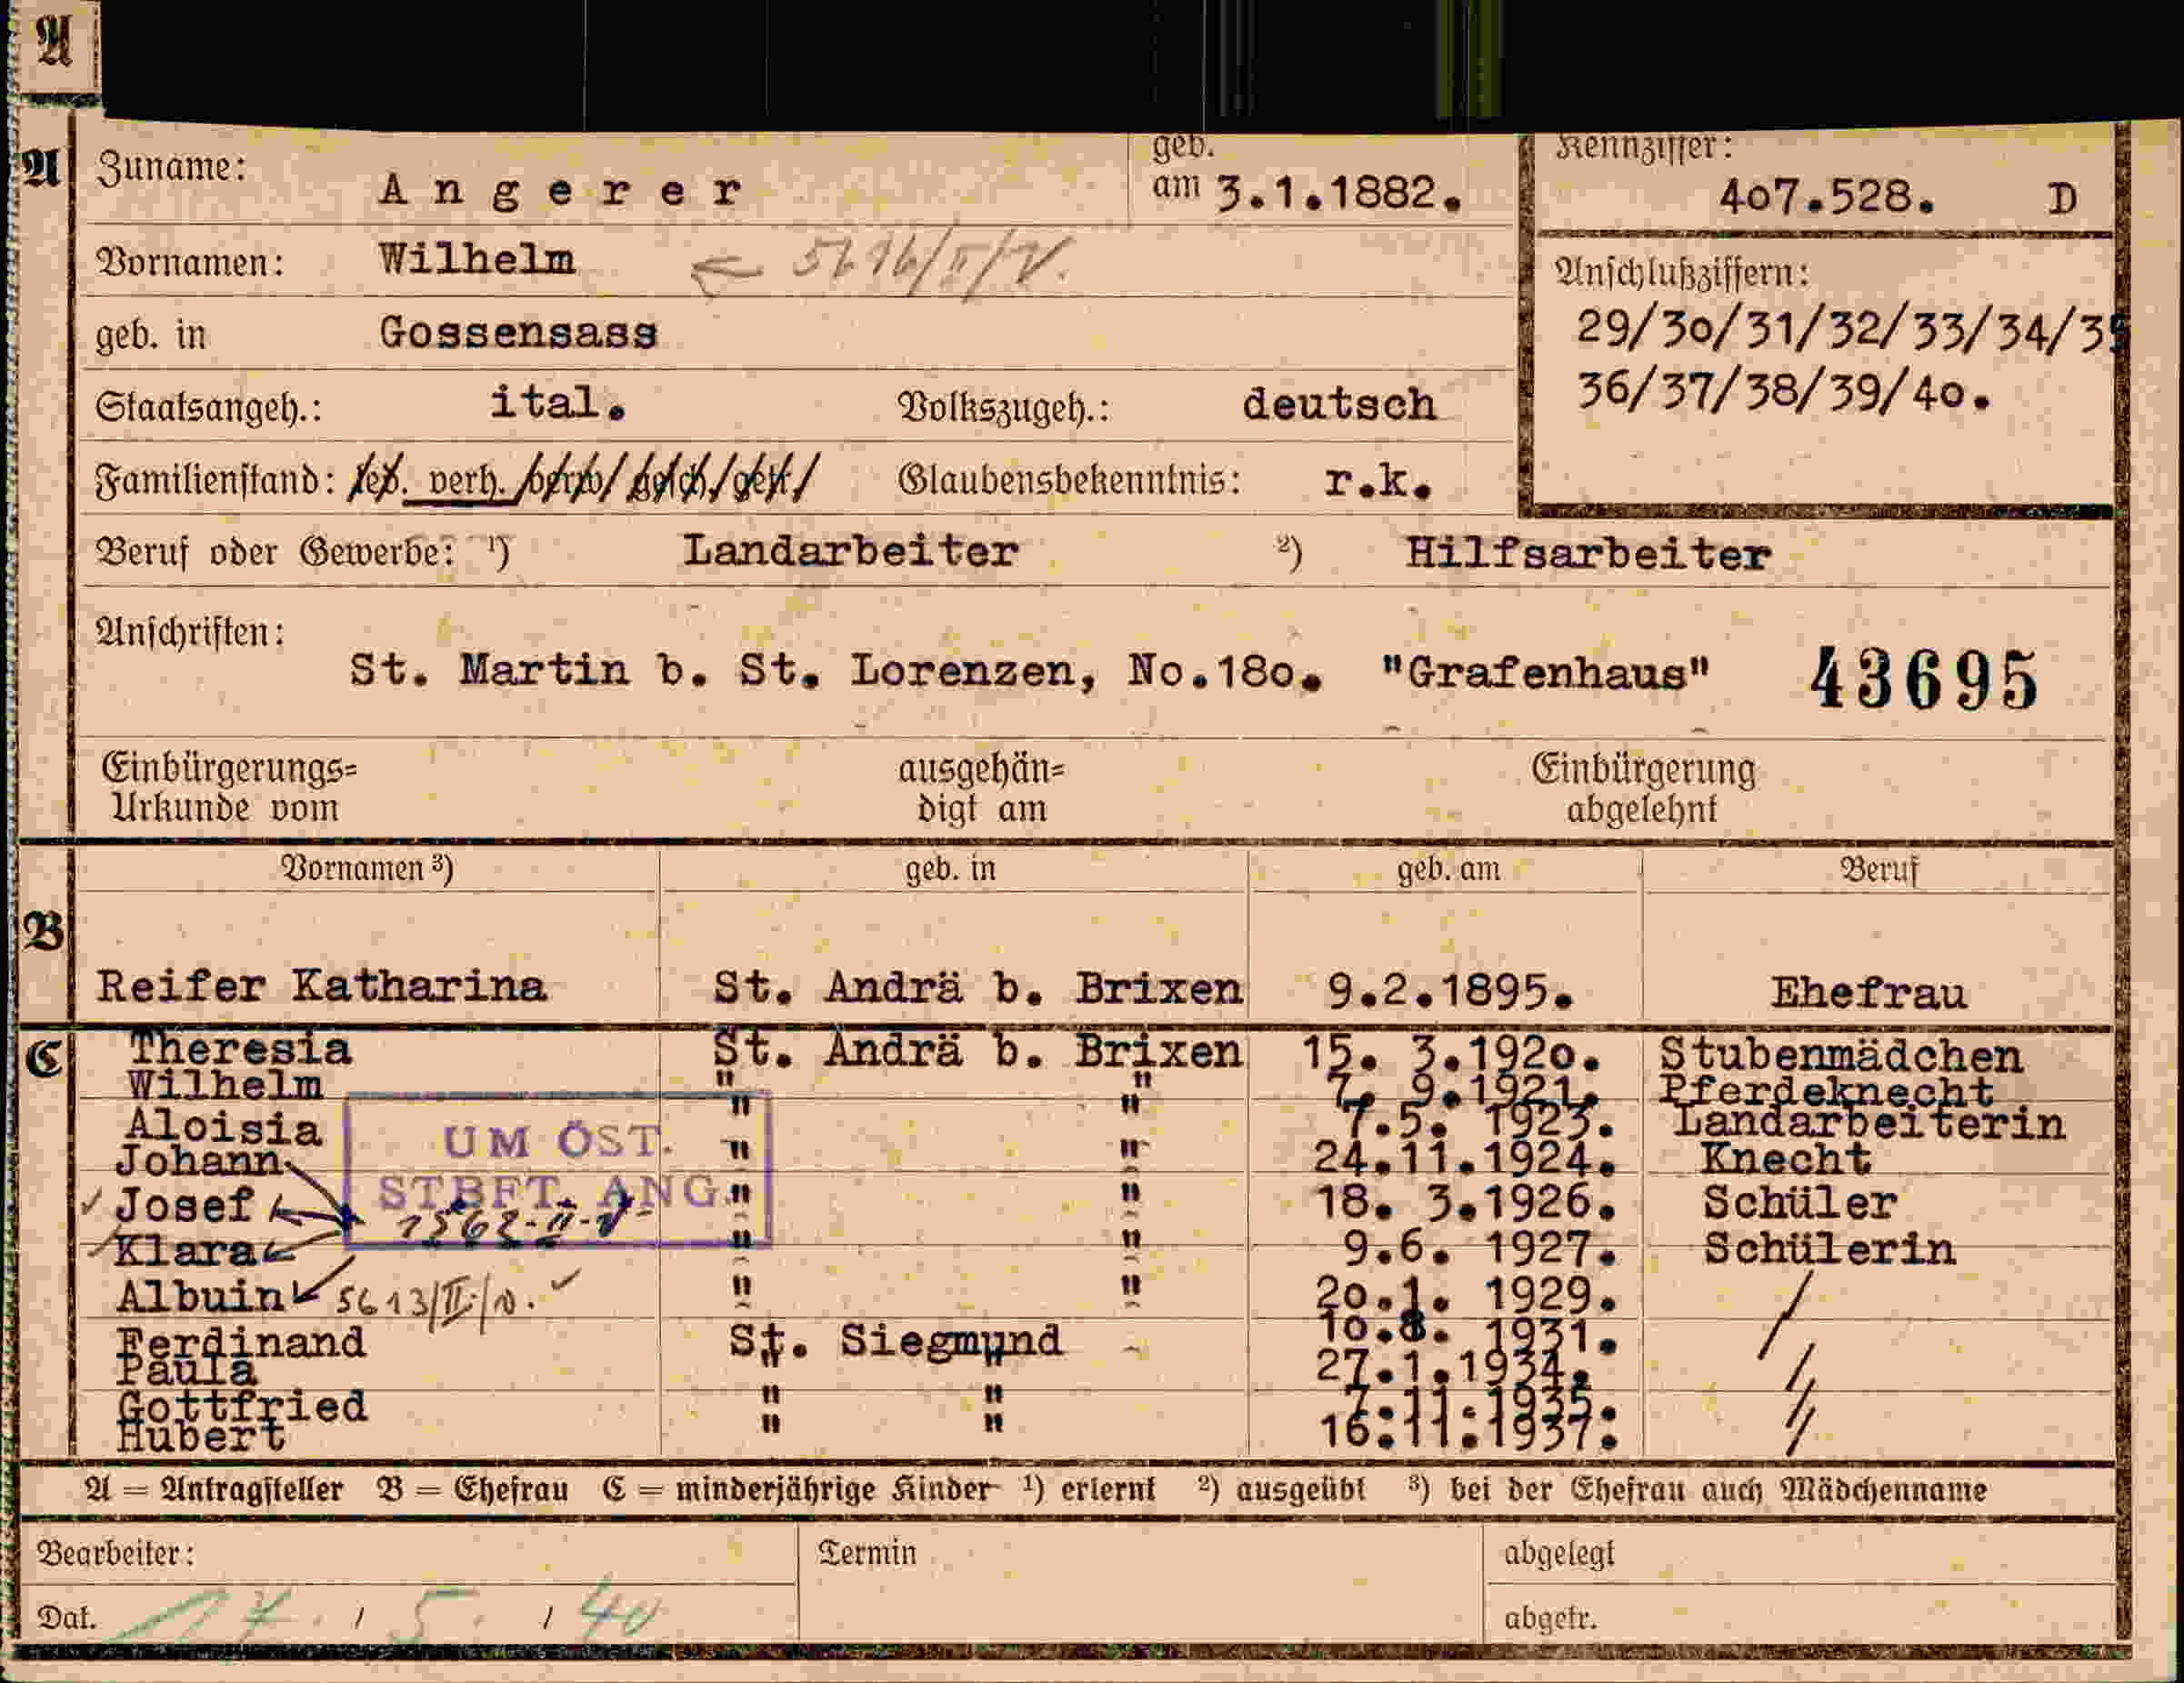 A
A Zuname: Angerer geb. am 3.1.1882. Kennziffer: 407.528. D
Vornamen: Wilhelm
Anschlußziffern:
geb. in Gossensass 29/30/31/32/33/34/35
Staatsangeh.: ital. Volkszugeh.: deutsch 36/37/38/39/40.
Familienstand: led. verh. Glaubensbekenntnis: r.k.
Beruf oder Gewerbe: 1) Landarbeiter 2) Hilfsarbeiter
Anschriften:
St. Martin b. St. Lorenzen, No.180. "Grafenhaus" 43695
Einbürgerungs= ausgehän= Einbürgerung
Urkunde vom digt am abgelehnt
Vornamen 3) geb. in geb. am Beruf
B
Reifer Katharina St. Andrä b. Brixen 9.2.1895. Ehefrau
C Theresia St. Andrä b. Brixen 15. 3.1920. Stubenmädchen
Wilhelm " " 7. 9.1921. Pferdeknecht
Aloisia " " 7.5. 1923. Landarbeiterin
UM ÖST.
Johann " " 24.11.1924. Knecht
STBFT. ANG.
Josef " " 18. 3.1926. Schüler
Klara " " 9.6. 1927. Schülerin
Albuin 5613/II/ " " 20.1. 1929. /
Ferdinand St. Siegmund 10.8. 1931.
Paula " " 27.1.1934. /
Gottfried " " 7.11.1935. /
Hubert " " 16.11.1937. /
A = Antragsteller B = Ehefrau C = minderjährige Kinder 1) erlernt 2) ausgeübt 3) bei der Ehefrau auch Mädchenname
Bearbeiter: Termin abgelegt
Dat. 17. / 5. / 40 abgetr.